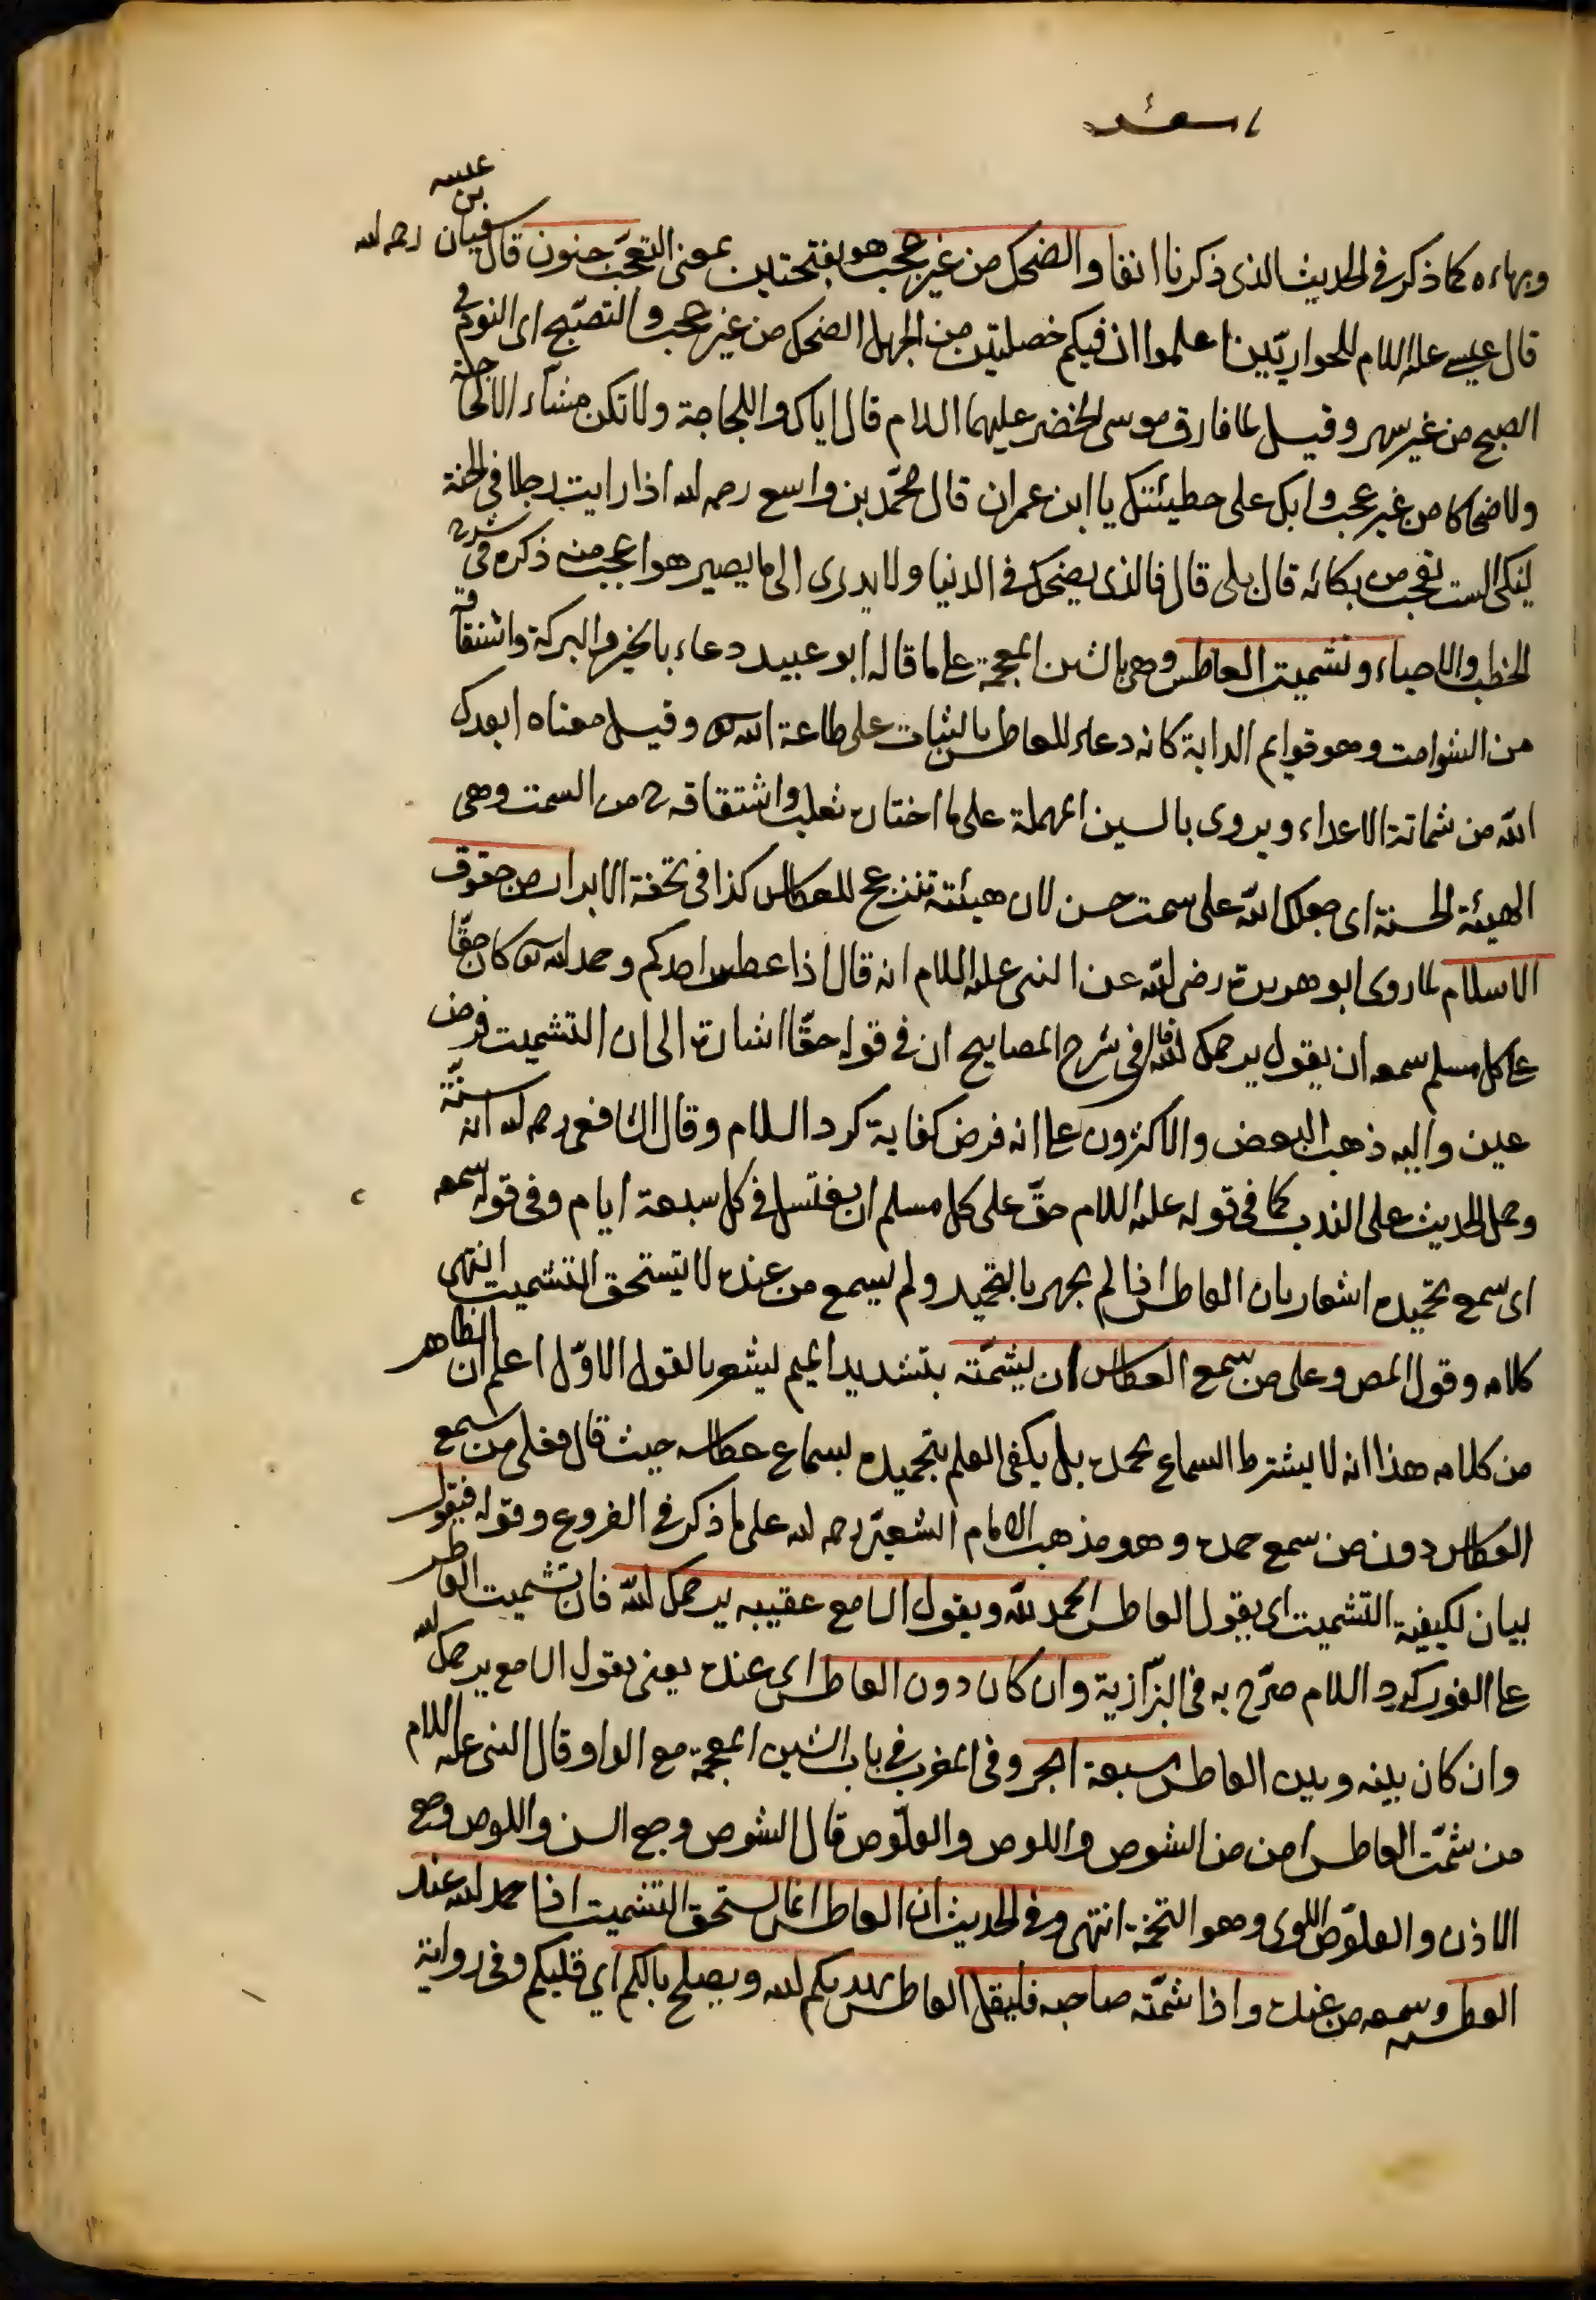 وبهاءه كما ذكر فى الحديث الذى ذكرنا انفا والضحك من غير عجب هو بفتحتين بمعنى التعجب جنون قال سفيان بن عيينه رحمه لله
قال عيسى عليه السلام للحواريّين اعلموا ان فيكم خصلتين من الجهل الضحك من غير عجب والتصبّح اى النوم فى
الصبح من غير سهر وقيل لما فارق موسى الخضر عليهما السلام قال اياك واللجاجة ولا تكن مشّاء الا لحاجة
ولا ضحاكا من غير عجب وابك على خطيئتك يا ابن عمران قال محمّد بن واسع رحمه لله اذا رايت رجلا فى الجنة
يبكى الست تعجب من بكائه قال بلى قال فالذى يضحك فى الدنيا ولا يدرى الى ما يصير هو اعجب منه ذكره فى شرح
الخطب والاحياء وتشميت العاطس وهى بالشين المعجمة على ما قاله ابو عبيد دعاء بالخير والبركة واشتقاقه
من الشوامت وهو قوايم الدابة كانه دعاء للعاطس بالثبات على طاعة الله تع وقيل معناه ابعدك
الله من شماتة الاعداء ويروى بالسين المهملة على ما اختاره ثعلب واشتقاقه ح من السمت وهى
الهيئة الحسنة اى جعلك الله على سمت حسن لان هيئته تنزعج للعطاس كذا فى تحفة الابرار من حقوق
الاسلام لما روى ابو هريرة رضى الله عن النبى عليه السلام انه قال اذا عطس احدكم وحمد الله تع كان حقّا
على كل مسلم سمعه ان يقول يرحمك الله قال فى شرح المصابيح ان فى قوله حقّا اشارة الى ان التشميت فرض
عين واليه ذهب البعض والاكثرون على انه فرض كفاية كرد السلام وقال الشافعى رحمه لله انه سنّة
وحمل الحديث على الندب كما فى قوله عليه السلام حقّ على كل مسلم ان يغتسل فى كل سبعة ايام وفى قوله سمعه
اى سمع تحميده اشعار بان العاطس اذا لم يجهر بالتحميد ولم يسمع من عنده لا يستحق التشميت انتهى
كلامه وقول المص وعلى من سمع العطاس ان يشمّته بتشديد الميم ليشعر بالقول الاوّل اعلم ان الظاهر
من كلامه هذا انه لا يشترط السماع بحمده بل يكفى العلم بتحميده بسماع عطاسه حيث قال فعلى من سمع
العطاس دون من سمع حمده وهو مذهب الامام الشعبى رحمه لله على ما ذكر فى الفروع وقوله فيقول
بيان لكيفية التشميت اى يقول العاطس الحمد لله ويقول السامع عقيبه يرحمك الله فان تشميت العاطس
على الفور كرد السلام صرّح به فى البزّازية وان كان دون العاطس اى عنده يعنى يقول السامع يرحمك الله
وان كان بينه وبين العاطس سبعة ابحر وفى المغرب فى باب الشين المعجمة مع الواو قال النبى عليه السلام
من شمّت العاطس امن من الشوص واللوص والعلّوص قال الشوص وجع السن واللوص وجع
الاذن والعلوّص اللوى وهو التخمة انتهى وفى الحديث ان العاطس انما يستحق التشميت اذا حمد الله عند
العطسة وسمعه من عنده واذا شمّته صاحبه فليقل العاطس يهديكم لله ويصلح بالكم اى قلبكم وفى رواية